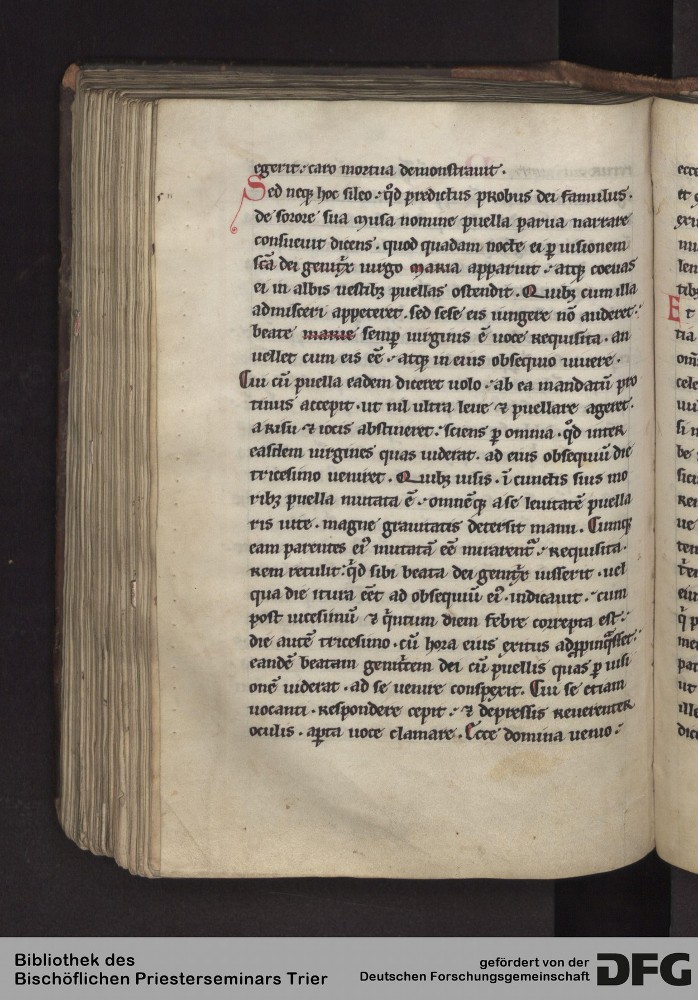 egerit. caro mortua demonstrauit.
Sed neqꝫ hoc sileo. qd̄ p̄dictus pRobus dei famulus.
de sorore sua Musa nomine puella parua narrare
consueuit dicens. quod quadam nocte ei ꝑ uisionem
sc̄a dei genitͥx uirgo maRia apparuit. atqꝫ coeuas
ei in albis uestibꝫ puellas ostendit. Quibꝫ cum illa
admisceri appeteret. sed sese eis iungere nō auderet.
beate marie semꝑ uirginis ē uoce Requisita. an
uellet cum eis eē. atqꝫ in eius obsequio uiuere.
Cui cū puella eadem diceret uolo. ab ea mandatū pro
tinus accepit. ut nil ultra leue ⁊ puellare ageret.
a Risu ⁊ iocis abstineret. sciens ꝑ omnia. qd̄ inteR
easdem uirgines quas uiderat. ad eius obsequiū die
tricesimo ueniret. Quibꝫ uisis. ī cunctis suis mo
ribꝫ puella mutata ē. omnēqꝫ a se leuitatē puella
ris uite. magne grauitatis detersit manu. Cumqꝫ
eam parentes eiꝰ mutatā eē mirarentᷣ. Requisita.
Rem retulit. qd̄ sibi beata dei genitͥx iusserit. uel
qua die itura eēt ad obsequiū eiꝰ. indicauit. cum
post uicesimū ⁊ qͥntum diem febre correpta est.
die autē tricesimo. cū hora eius exitus adꝓpinqͣsset.
eandē beatam genitͥcem dei cū puellis quas ꝑ uisi
onē uiderat. ad se uenire conspexit. Cui se etiam
uocanti. Respondere cepit. ⁊ depressis ReuerenteR
oculis. aꝑta uoce clamare. Ecce domina uenio.
E
Bibliothek des
Bischöflichen Priesterseminars Trier
gefördert von der
Deutschen Forschungsgemeinschaft
DFG